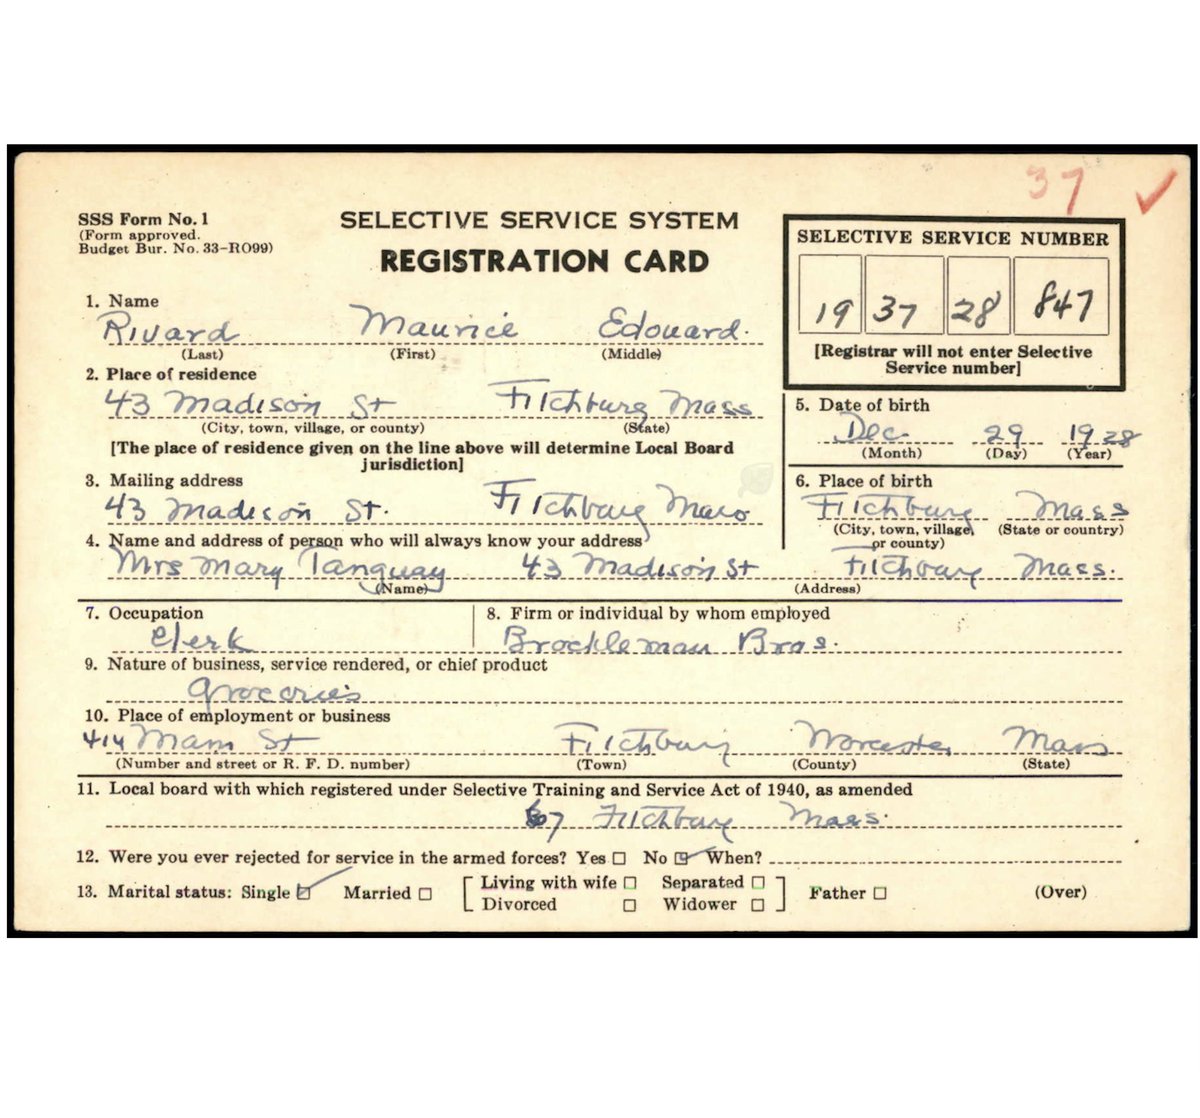 37 ✓
SSS Form No. 1
(Form approved.
Budget Bur. No. 33-RO99)
SELECTIVE SERVICE SYSTEM
REGISTRATION CARD
SELECTIVE SERVICE NUMBER
19 37 28 847
[Registrar will not enter Selective
Service number]
1. Name
Rivard Maurice Edouard.
(Last) (First) (Middle)
2. Place of residence
43 Madison St Fitchburg Mass
(City, town, village, or county) (State)
[The place of residence given on the line above will determine Local Board
jurisdiction]
3. Mailing address
43 Madison St. Fitchburg Mass
4. Name and address of person who will always know your address
Mrs Mary Tanguay 43 Madison St Fitchburg Mass.
(Name) (Address)
5. Date of birth
Dec. 29 1928
(Month) (Day) (Year)
6. Place of birth
Fitchburg Mass
(City, town, village, (State or country)
or county)
7. Occupation
Clerk
8. Firm or individual by whom employed
Brockleman Bros.
9. Nature of business, service rendered, or chief product
Groceries
10. Place of employment or business
414 Main St Fitchburg Worcester Mass
(Number and street or R. F. D. number) (Town) (County) (State)
11. Local board with which registered under Selective Training and Service Act of 1940, as amended
67 Fitchburg Mass.
12. Were you ever rejected for service in the armed forces? Yes ☐ No ☑ When?
13. Marital status: Single ☑ Married ☐ [ Living with wife ☐ Separated ☐ ] Father ☐ (Over)
Divorced ☐ Widower ☐